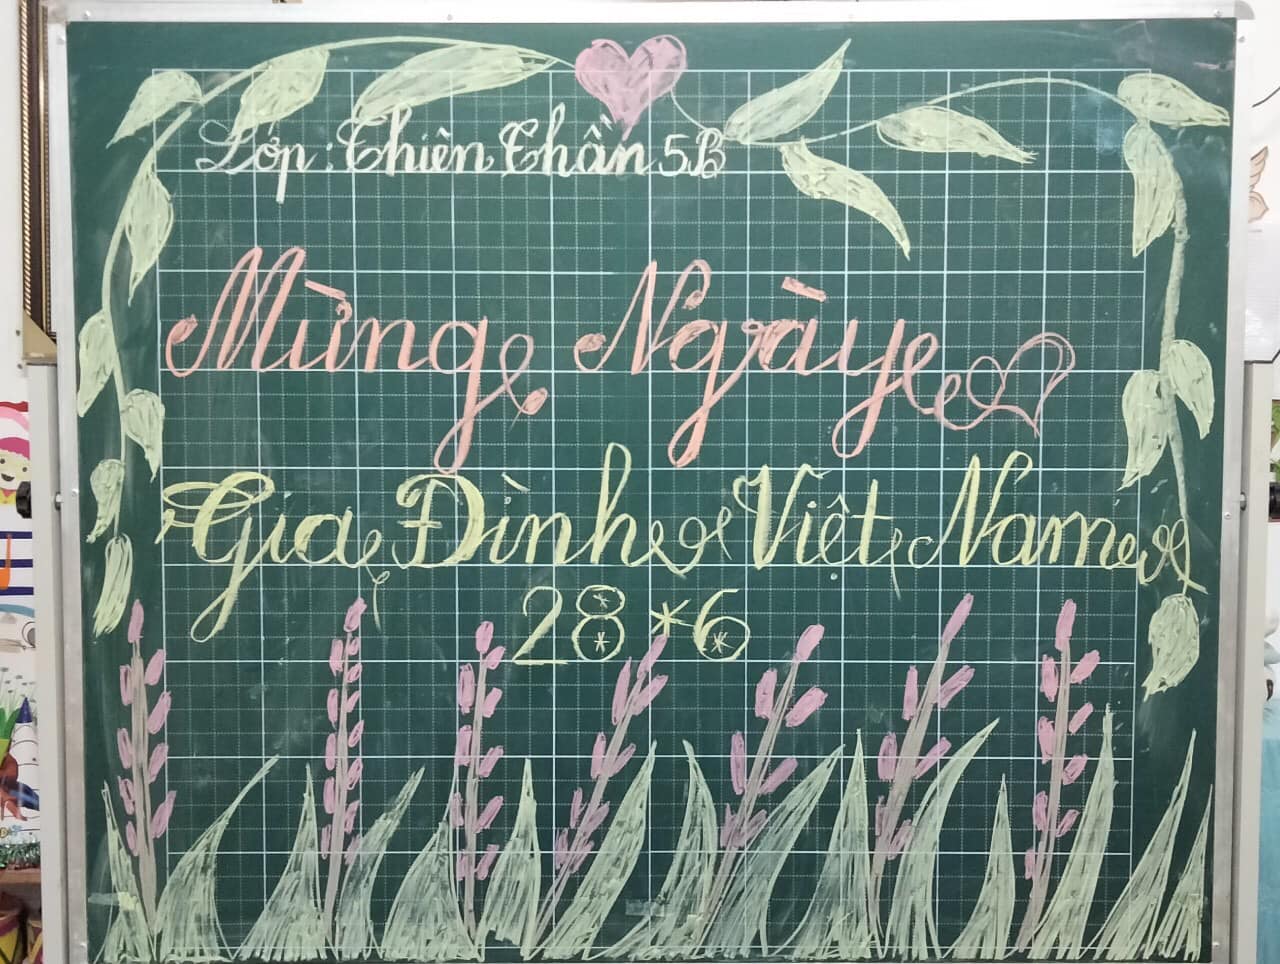 Lớp: Thiên Thần 5B
Mừng Ngày
Gia Đình Việt Nam
28*6